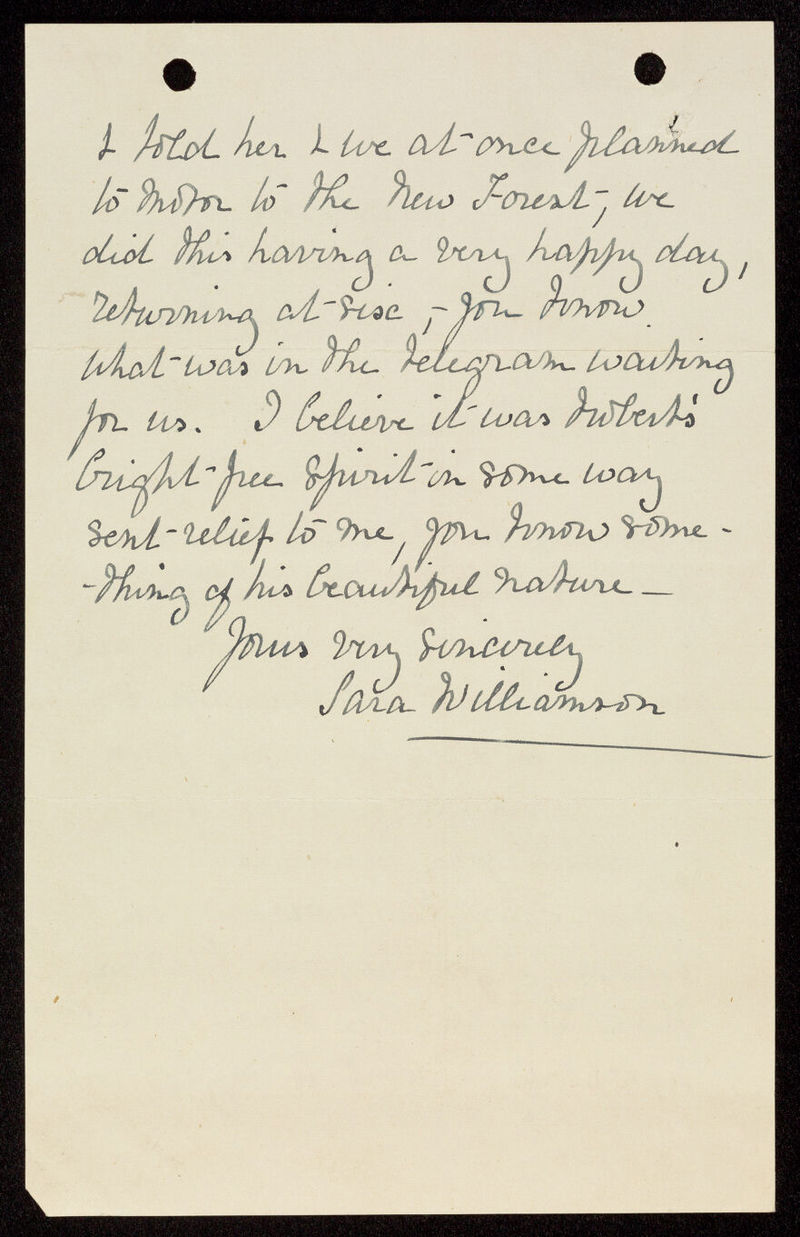 & told her & we at once planned
to motor to the New Forest, we
did this having a very happy day,
returning at six, - you know
what was in the telegram waiting
for us. I believe it was Hubert's
bright free spirit in some way
sent relief to me, you know some-
-thing of his beautiful nature —
Yours very sincerely
Sara Williamson